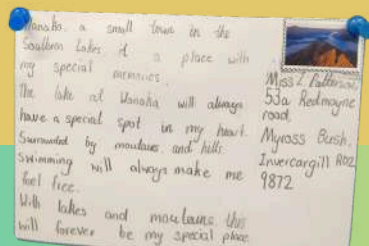 Wanaka, a small town in the
Southern Lakes, it a place with
my special memories.
The lake at Wanaka will always
have a special spot in my heart.
Surrounded by moutains, and hills
Swimming will always make me
feel free.
With lakes and moutains, this
will forever be my special place
Miss L Patterson,
53a Redmayne
road,
Myross Bush,
Invercargill RD2
9872